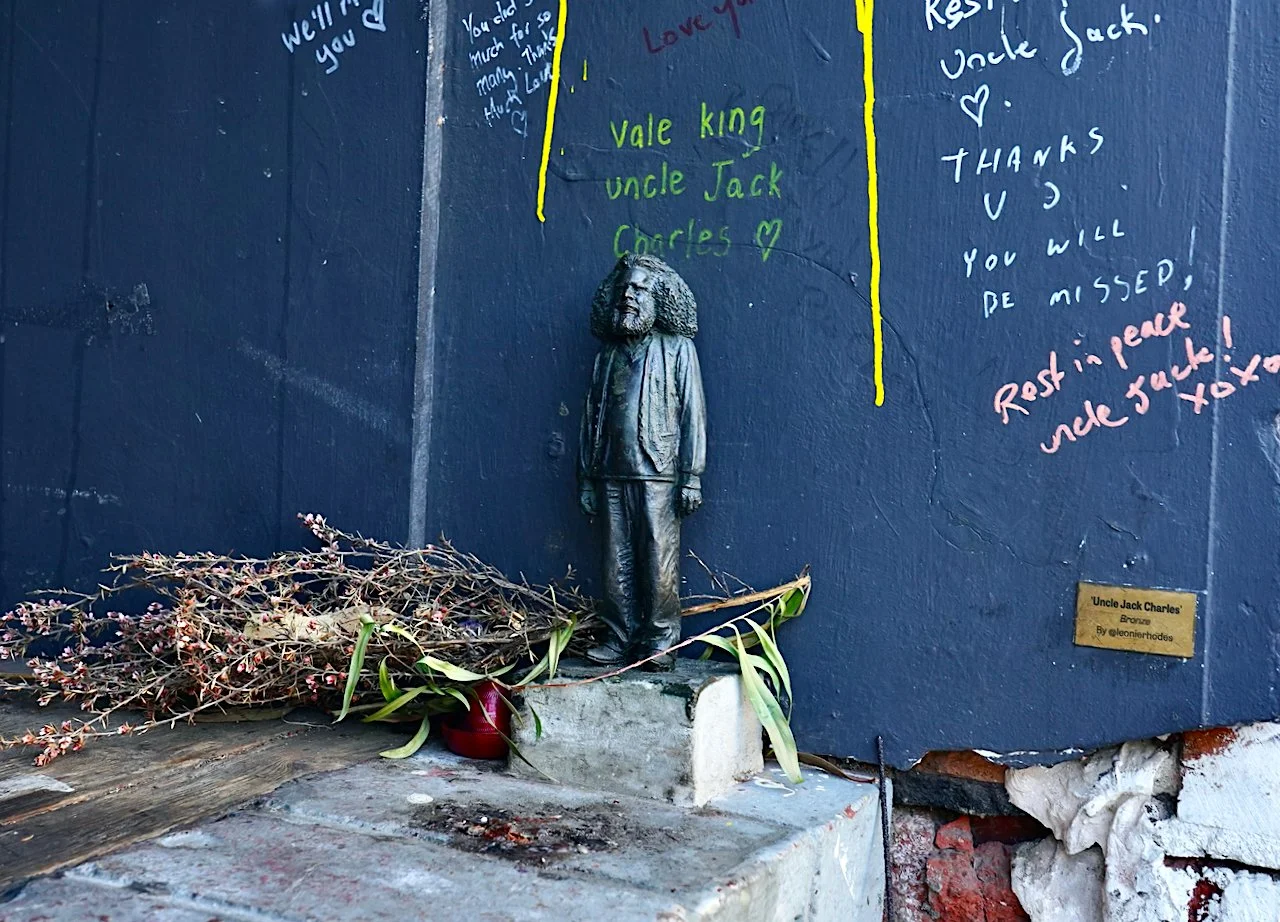 We'll
you
You did
much for so
many. Thanks
Much Love
Love you
Vale king
uncle Jack
Charles
Rest
Uncle Jack.
THANKS
U
YOU WILL
BE MISSED!
Rest in peace
uncle Jack!
xoxo
'Uncle Jack Charles'
Bronze
By @leonierhodes